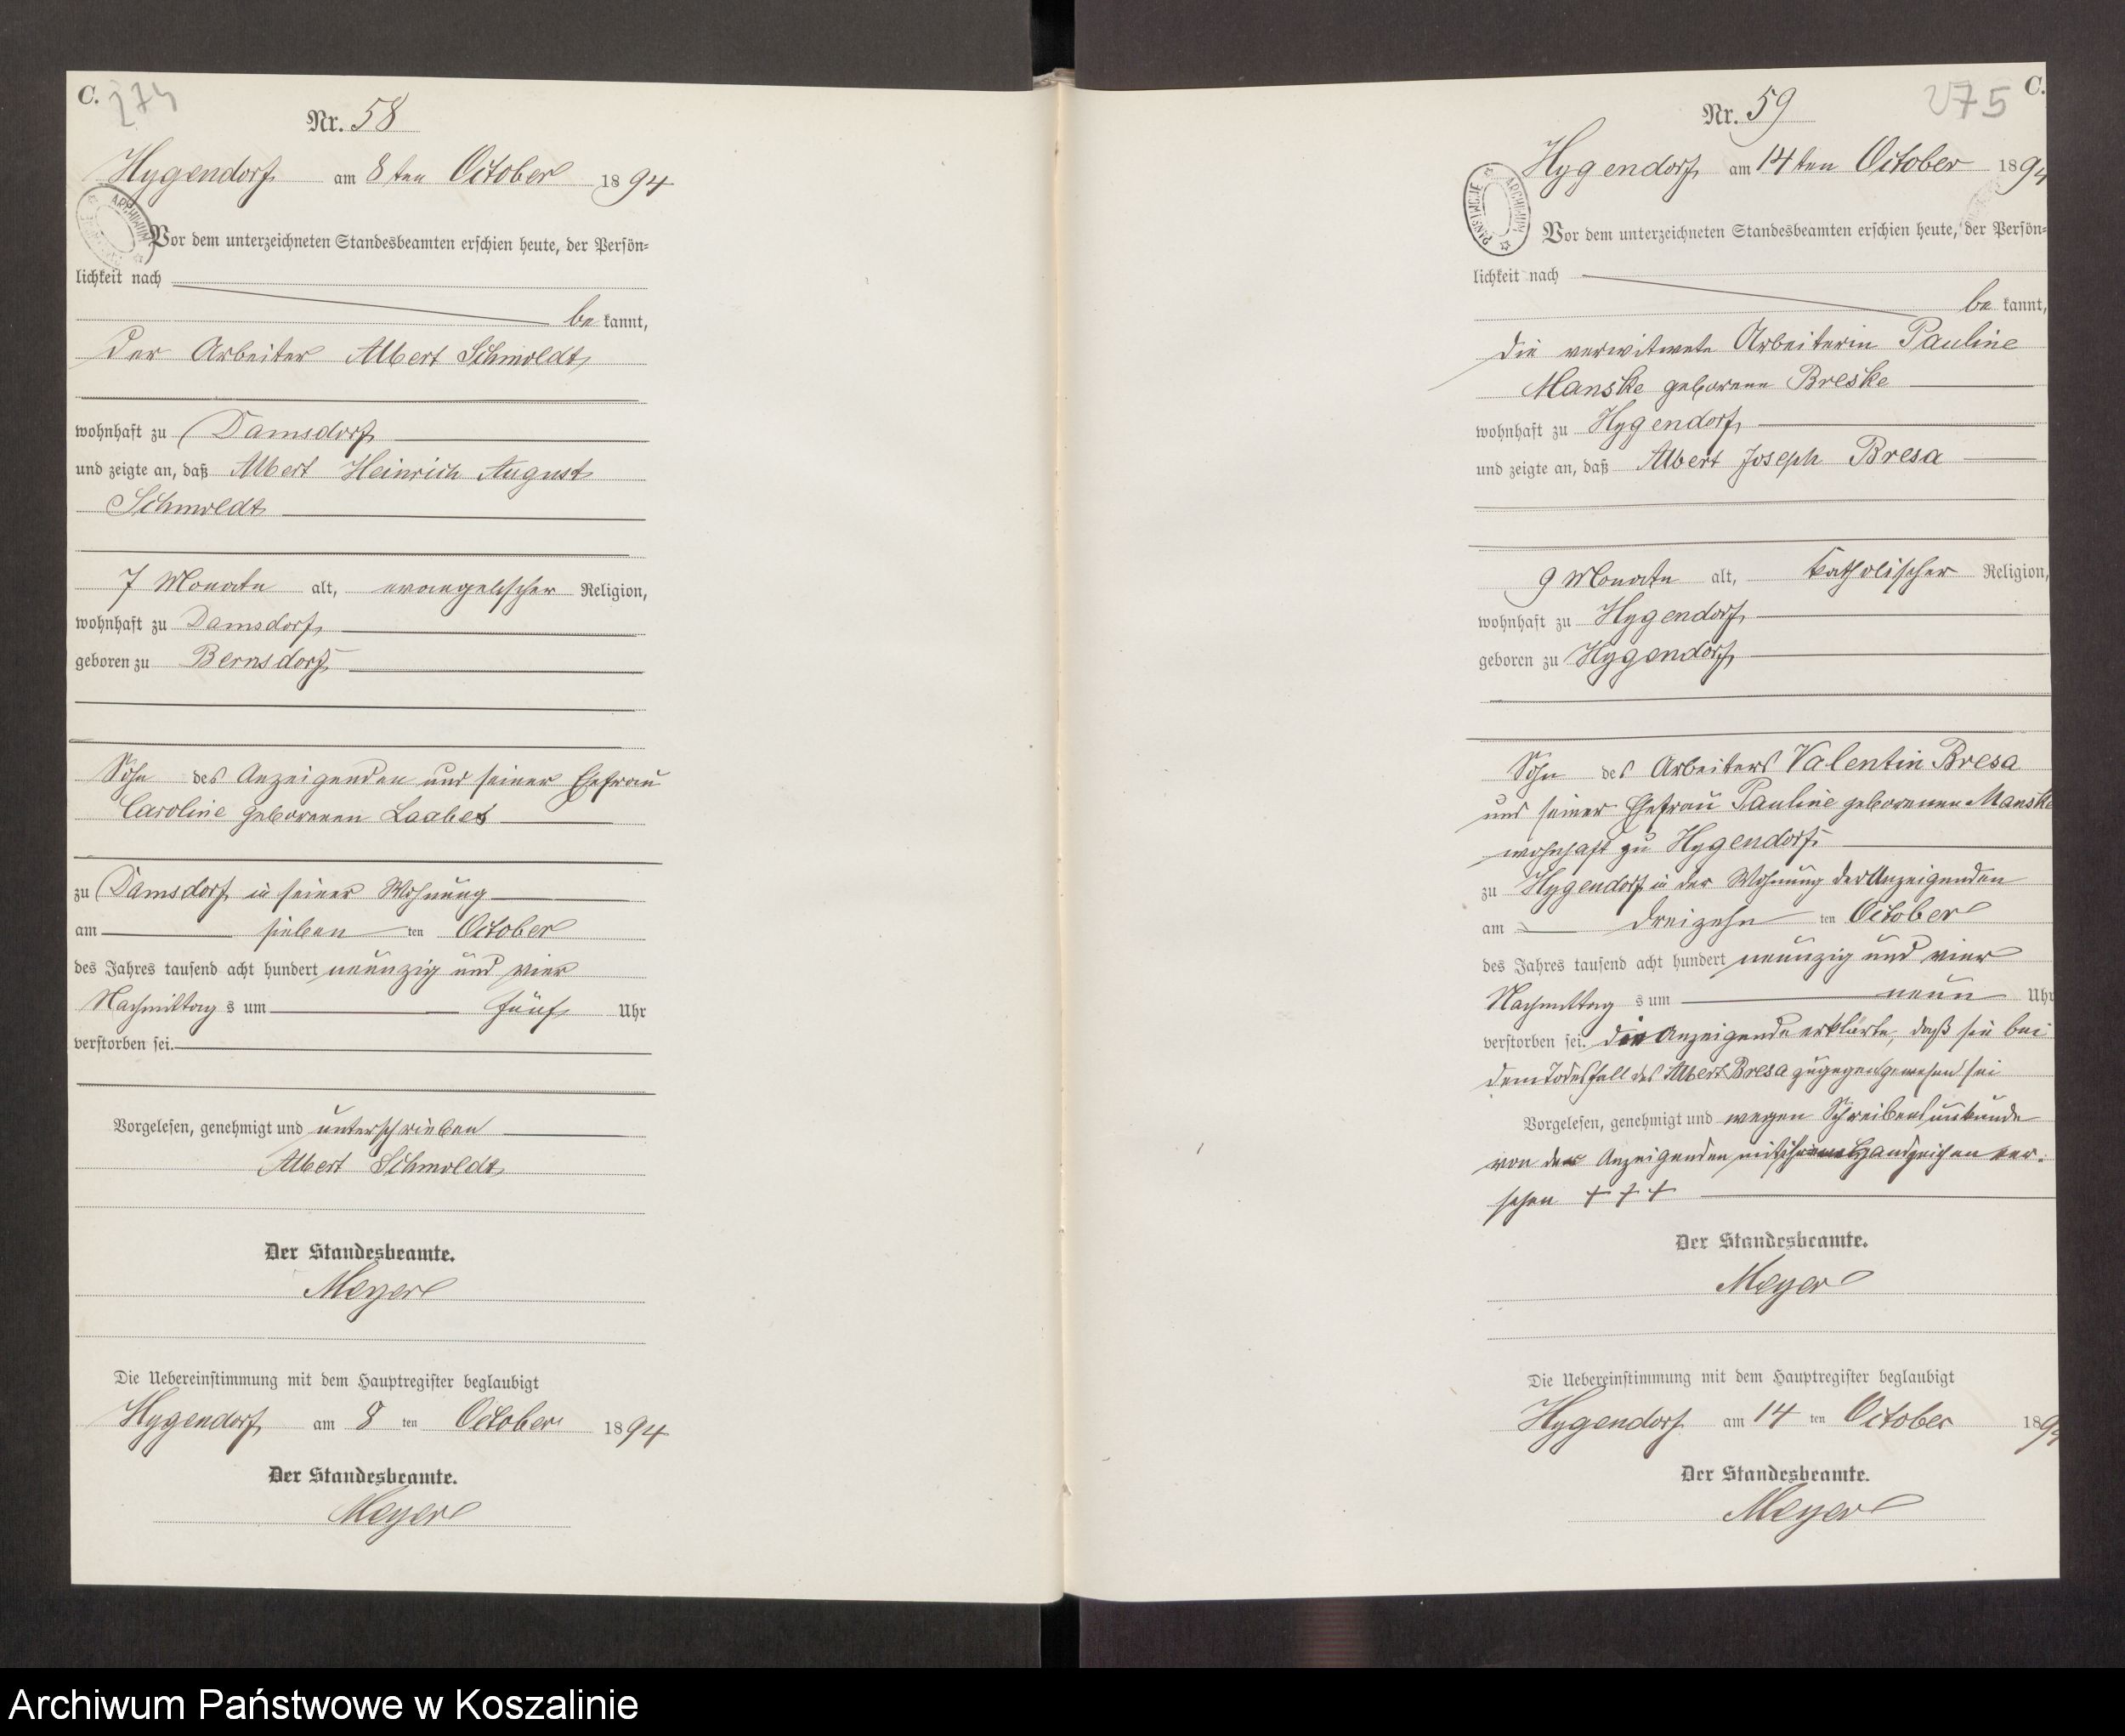 C. 274
Nr. 58
Hygendorf am 8ten October 1894
ARCHIWUM
Vor dem unterzeichneten Standesbeamten erschien heute, der Persön=
lichkeit nach
be kannt,
der Arbeiter Albert Schmoldt,
wohnhaft zu Damsdorf
und zeigte an, daß Albert Heinrich August
Schmoldt
7 Monate alt, evangelischer Religion,
wohnhaft zu Damsdorf
geboren zu Bernsdorf
Sohn des Anzeigenden und seiner Ehefrau
Caroline geborenen Laabes
zu Damsdorf in seiner Wohnung
am sieben ten October
des Jahres tausend acht hundert neunzig und vier
Nachmittag s um fünf Uhr
verstorben sei.
Vorgelesen, genehmigt und unterschrieben
Albert Schmoldt
Der Standesbeamte.
Meyer
Die Uebereinstimmung mit dem Hauptregister beglaubigt
Hygendorf am 8 ten October 1894
Der Standesbeamte.
Meyer
275 C.
Nr. 59
Hygendorf am 14ten October 1894
ARCHIWUM PAŃSTWOWE
Vor dem unterzeichneten Standesbeamten erschien heute, der Persön=
lichkeit nach
be kannt,
die verwitwete Arbeiterin Pauline
Manske geborene Breske
wohnhaft zu Hygendorf
und zeigte an, daß Albert Joseph Bresa
9 Monate alt, katholischer Religion,
wohnhaft zu Hygendorf
geboren zu Hygendorf
Sohn des Arbeiters Valentin Bresa
und seiner Ehefrau Pauline geborenen Manske
wohnhaft zu Hygendorf
zu Hygendorf in der Wohnung der Anzeigenden
am dreizehn ten October
des Jahres tausend acht hundert neunzig und vier
Nachmittag s um neun Uhr
verstorben sei. die Anzeigende erklärte, daß sie bei
dem Todesfall des Albert Bresa zugegen gewesen sei
Vorgelesen, genehmigt und wegen Schreibensunkunde
von der Anzeigenden mit Handzeichen ver=
sehen + + +
Der Standesbeamte.
Meyer
Die Uebereinstimmung mit dem Hauptregister beglaubigt
Hygendorf am 14 ten October 1894
Der Standesbeamte.
Meyer
Archiwum Państwowe w Koszalinie